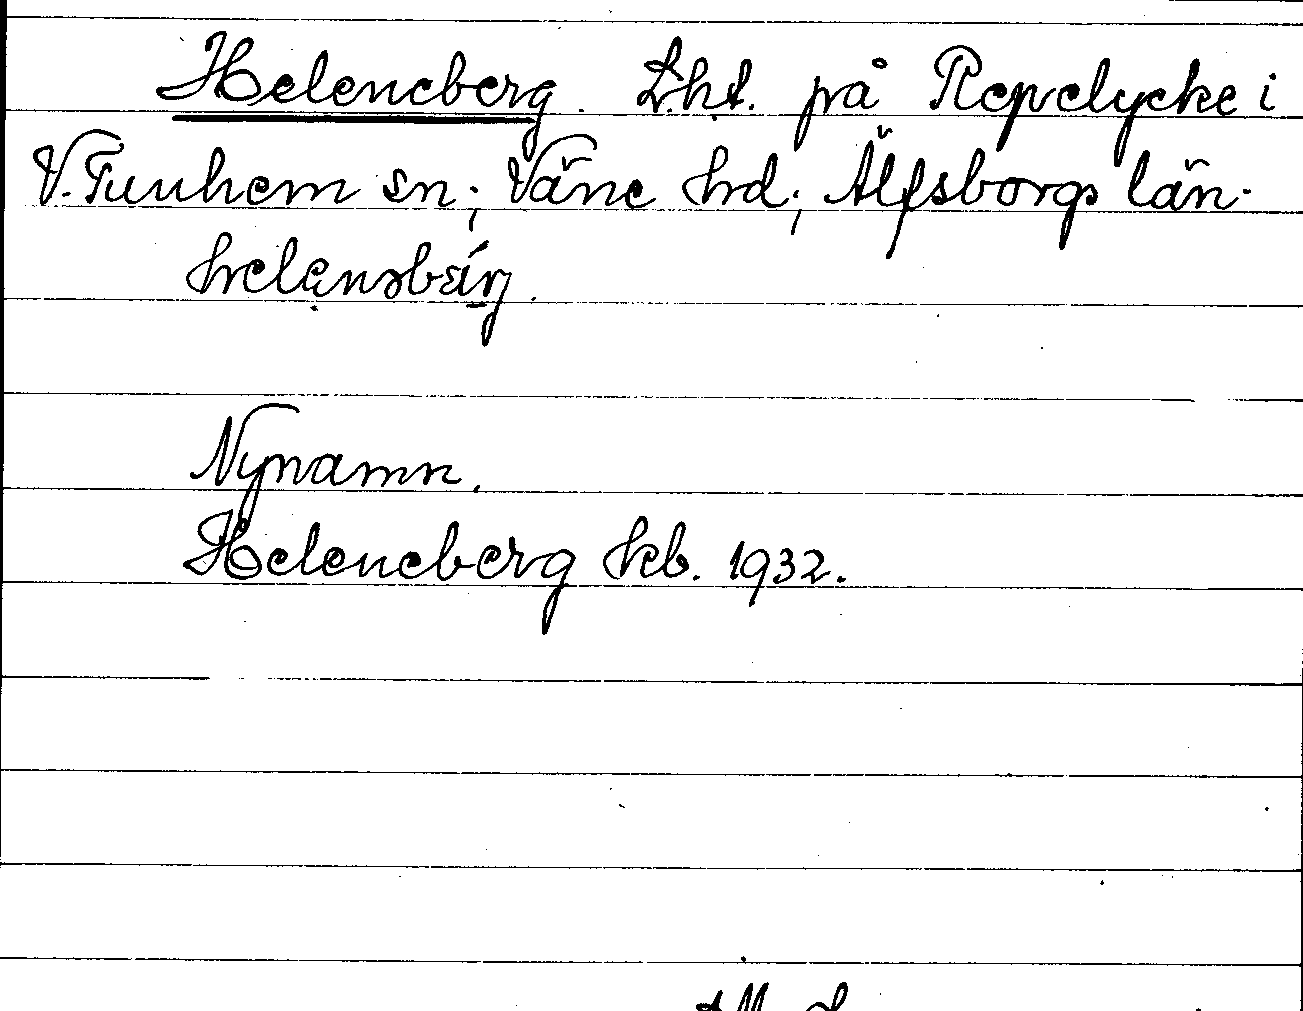 Heleneberg. Lht. på Repelycke i
V. Tunhem sn; Väne hd; Älfsborgs län.
Nynamn.
Heleneberg kb. 1932.